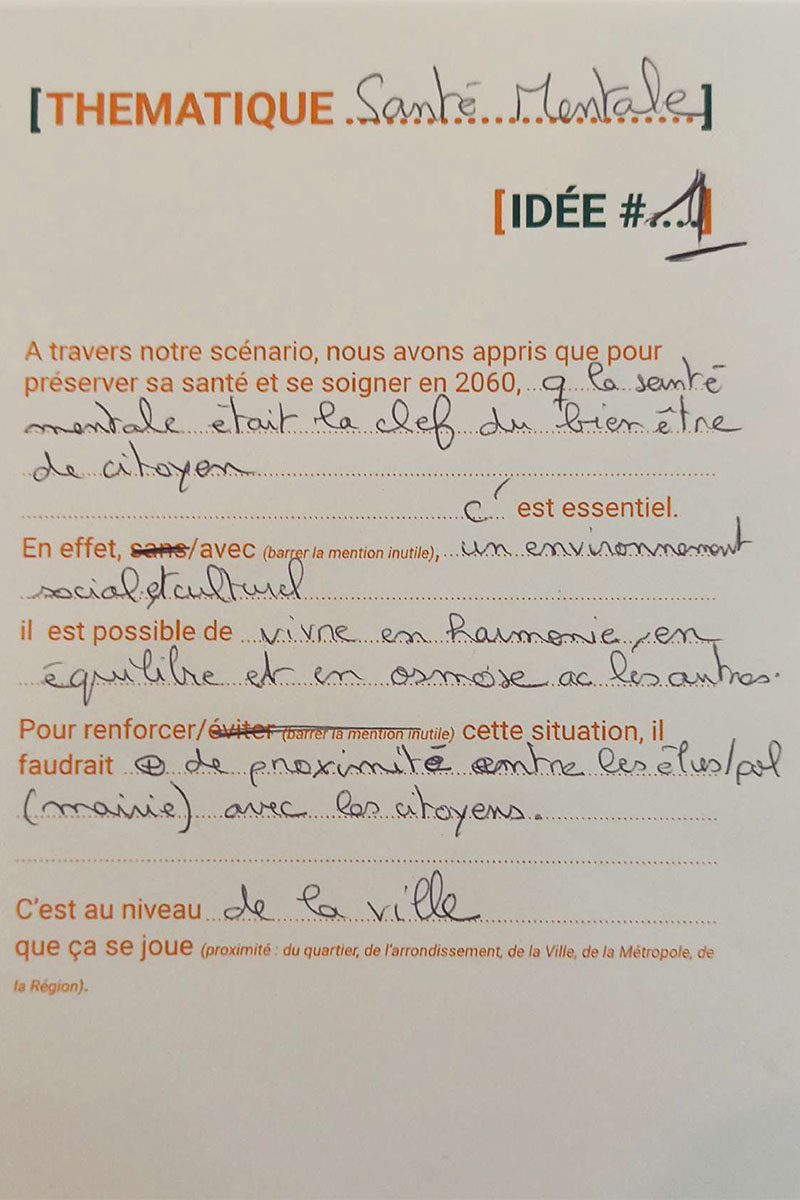 [THEMATIQUE Santé Mentale]
[IDÉE #...1]
A travers notre scénario, nous avons appris que pour
préserver sa santé et se soigner en 2060, q la santé
mentale était la clef du bien être
de citoyen
c' est essentiel.
En effet, sans/avec (barrer la mention inutile), un environnement
social et culturel
il est possible de vivre en harmonie, en
équilibre et en osmose ac les autres.
Pour renforcer/éviter (barrer la mention inutile) cette situation, il
faudrait ⊕ de proximité entre les élus/pol
(mairie) avec les citoyens.
C'est au niveau de la ville
que ça se joue (proximité : du quartier, de l'arrondissement, de la Ville, de la Métropole, de
la Région).